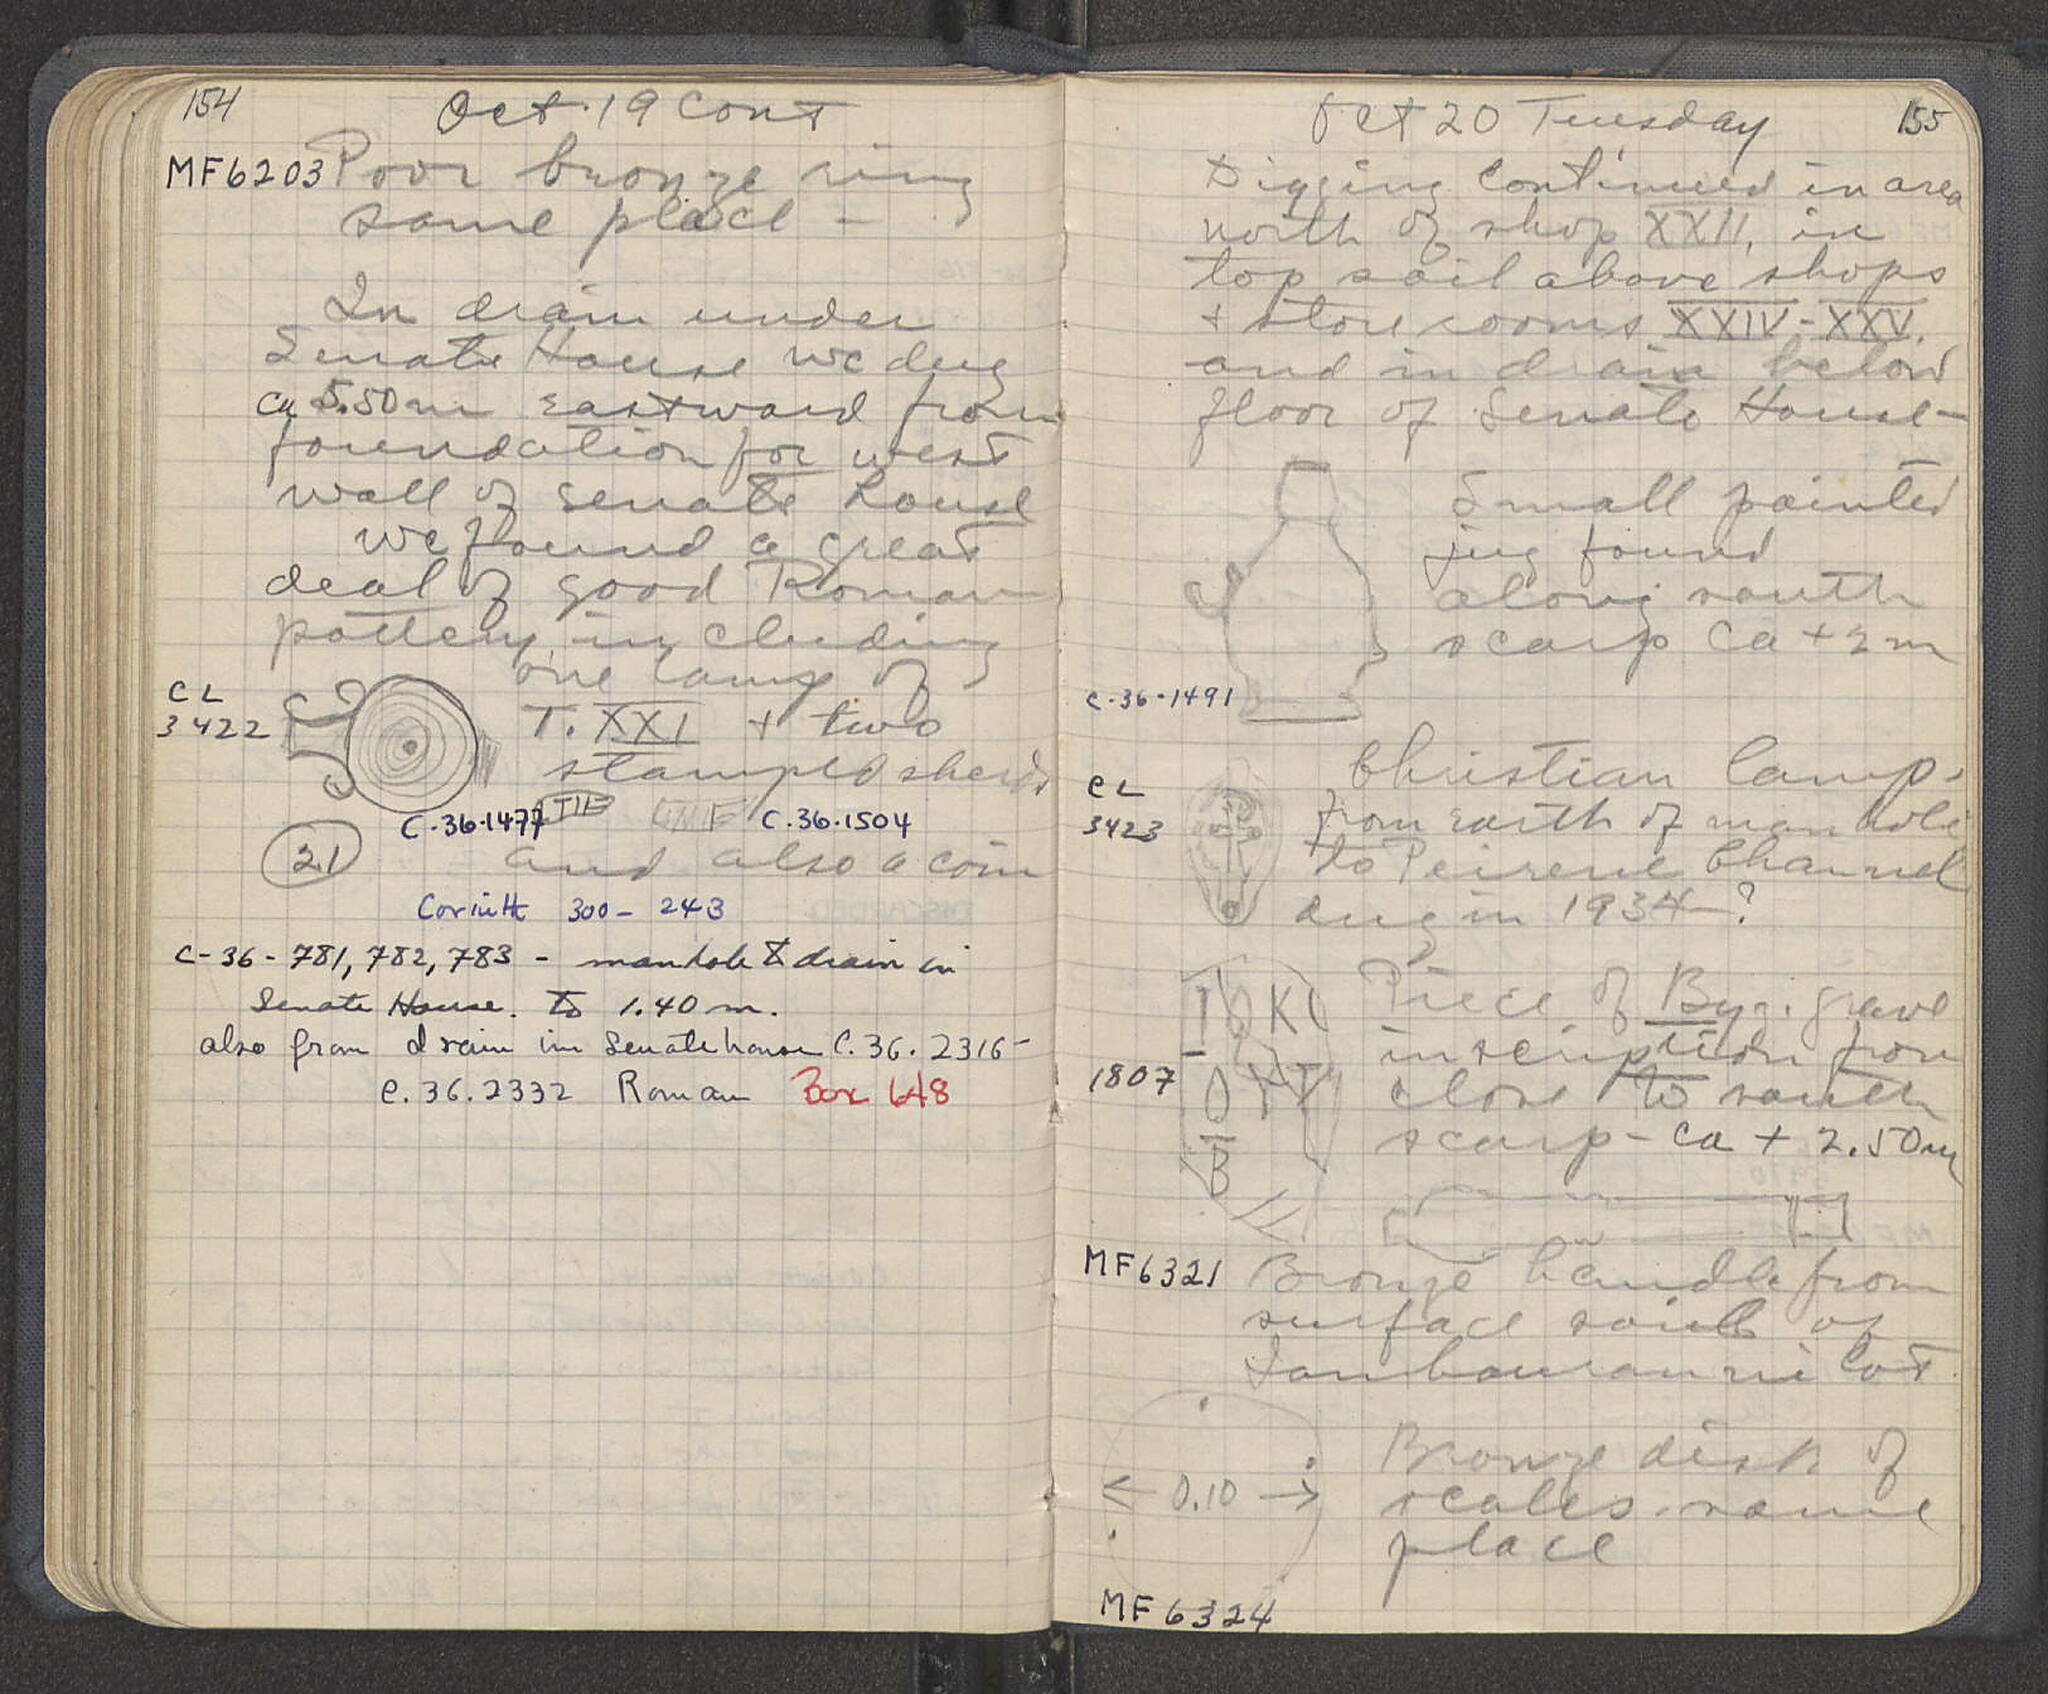 154
Oct. 19 Cont
MF6203 Poor bronze ring
same place -
In drain under
Senate House we dug
ca 5.50 m eastward from
foundation for west
wall of senate house
we found a great
deal of good Roman
pottery including
one lamp of
CL
3422
T. XXI + two
stamped sherds
C.36.1477
C.36.1504
21
and also a coin
Corinth 300 - 243
C-36-781, 782, 783 - manhole & drain in
Senate House. to 1.40 m.
also from drain in Senate house C.36.2316-
C.36.2332 Roman Box 648
Oct 20 Tuesday
155
Digging continued in area
north of shop XXII, in
top soil above shops
+ store rooms XXIV - XXV.
and in drain below
floor of Senate House -
Small painted
jug found
along south
scarp ca + 2 m
C-36-1491
Christian lamp.
CL
3423
from earth of manhole
to Peirene Channel
dug in 1934 - ?
Piece of Byz. grave
inscription from
1807
close to south
scarp - ca + 2.50 m
B
MF6321 Bronze handle from
surface south of
Tambouranni lot
Bronze disk of
← 0.10 →
scales. same
place
MF 6324